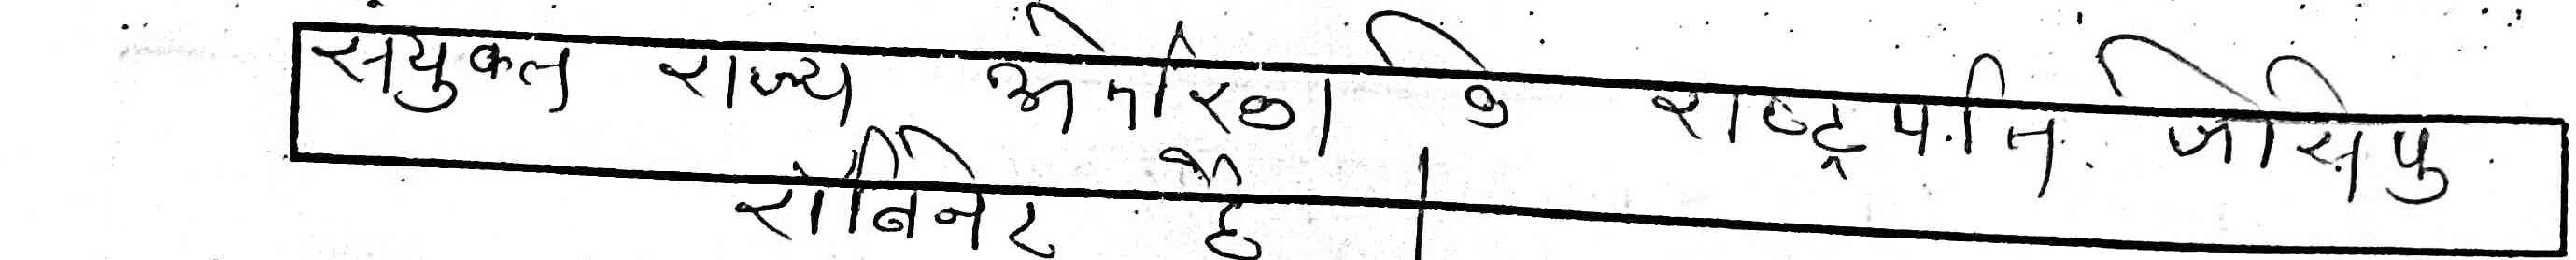 सयुक्त राज्य अमेरिका के राष्ट्रपति जोसेफ
रॉबिनेट है।